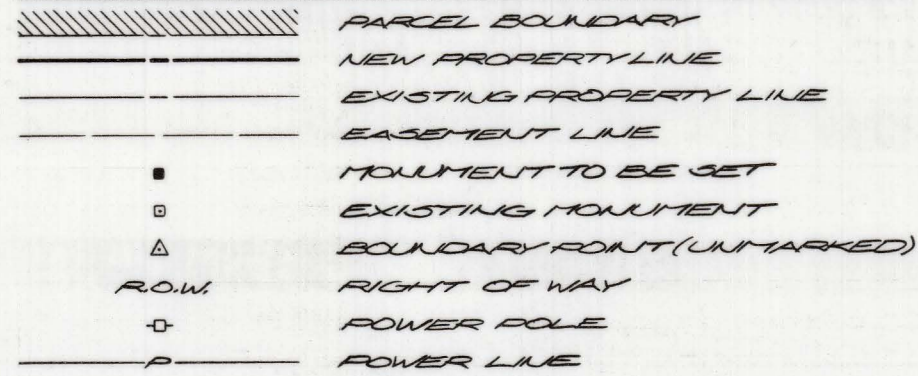 PARCEL BOUNDARY
NEW PROPERTY LINE
EXISTING PROPERTY LINE
EASEMENT LINE
MONUMENT TO BE SET
EXISTING MONUMENT
BOUNDARY POINT (UNMARKED)
R.O.W. RIGHT OF WAY
POWER POLE
P POWER LINE